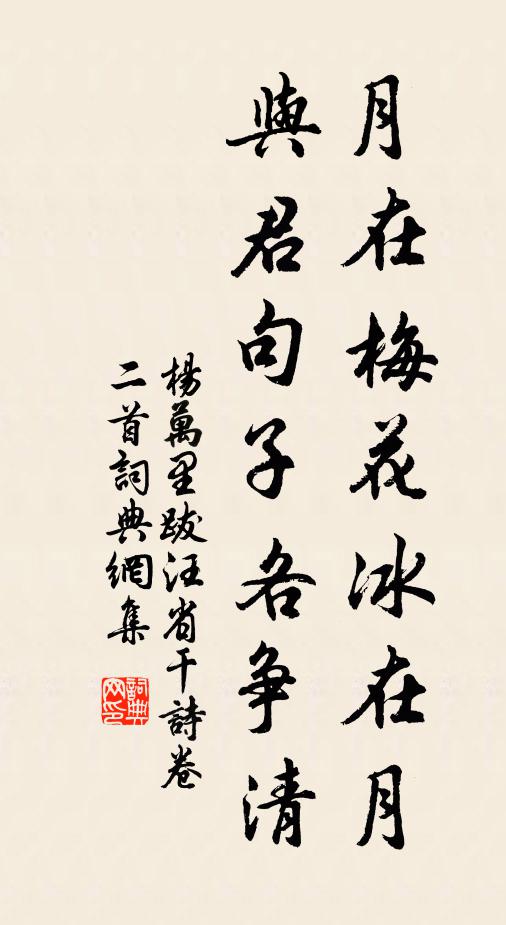 月在梅花冰在月
與君句子各争清
楊萬里跋汪省干詩卷
二首詞典網集
詞典
网印